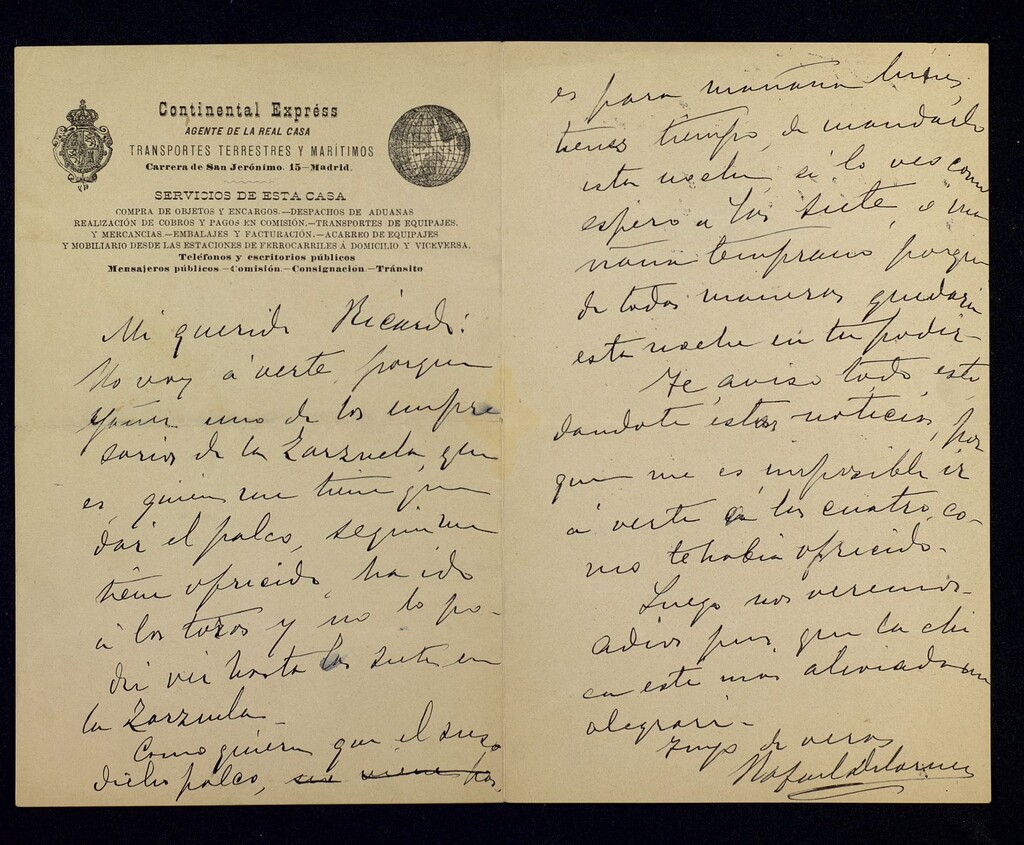 Continental Expréss
AGENTE DE LA REAL CASA
TRANSPORTES TERRESTRES Y MARÍTIMOS
Carrera de San Jerónimo. 15—Madrid.
SERVICIOS DE ESTA CASA
COMPRA DE OBJETOS Y ENCARGOS.—DESPACHOS DE ADUANAS
REALIZACIÓN DE COBROS Y PAGOS EN COMISIÓN.—TRANSPORTES DE EQUIPAJES.
Y MERCANCIAS.—EMBALAJES Y FACTURACIÓN.—ACARREO DE EQUIPAJES
Y MOBILIARIO DESDE LAS ESTACIONES DE FERROCARRILES Á DOMICILIO Y VICEVERSA.
Teléfonos y escritorios públicos
Mensajeros públicos.—Comisión.—Consignación.—Tránsito
Mi querido Ricardo:
No voy á verte, porque
uno de los empre
sarios de la Zarzuela, que
es, quien me tiene que
dar el palco, segun me
tiene ofrecido, ha ido
á los toros y no lo po-
dré ver hasta las siete en
la Zarzuela.
Como quiera que el
dicho palco,
es para mañana lunes,
tienes tiempo de mandarlo
esta noche, si lo veo como
espero a las siete, o ma
ñana temprano porque
de todas maneras quedaria
esta noche en tu poder.
Te aviso todo esto
dandote estas noticias, por
que me es imposible ir
á verte a las cuatro, co-
mo te habia ofrecido.
Luego nos veremos
adios pues, que la chi
ca este mas aliviada me
alegraré.
de veras
Rafael